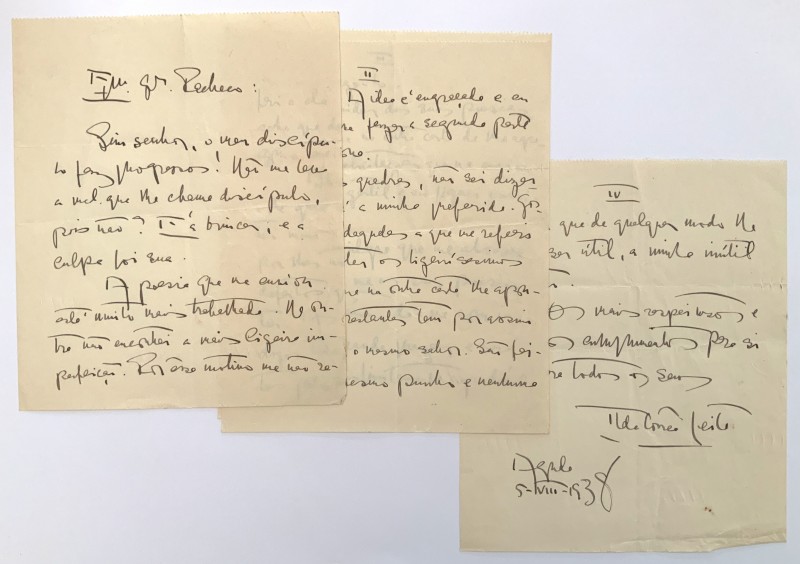 Exm. Sr. Pacheco:
Sim senhor, o meu discípu-
lo faz progressos! Não me leve
a mal que lhe chame discípulo,
pois não? É a brincar, e a
culpa foi sua.
A poesia que me enviou
está muito mais trabalhada. No ou-
tro não encontrei a mais ligeira im-
perfeição. Por êsse motivo me não re-
II
A ideia é engraçada e eu
fazer a segunda parte
quadras, não sei dizer
é a minha preferida. Gos-
daquelas a que me refiro
os ligeiríssimos
na outra carta lhe apon-
restantes tem por assim
o mesmo sabor. São fei-
mesmo punho e nenhuma
IV
que de qualquer modo lhe
ser útil, a minha inútil
Os mais respeitosos e
cumprimentos para si
e todos os seus
Ilda Corrêa Leite
Águeda
9-VIII-1938